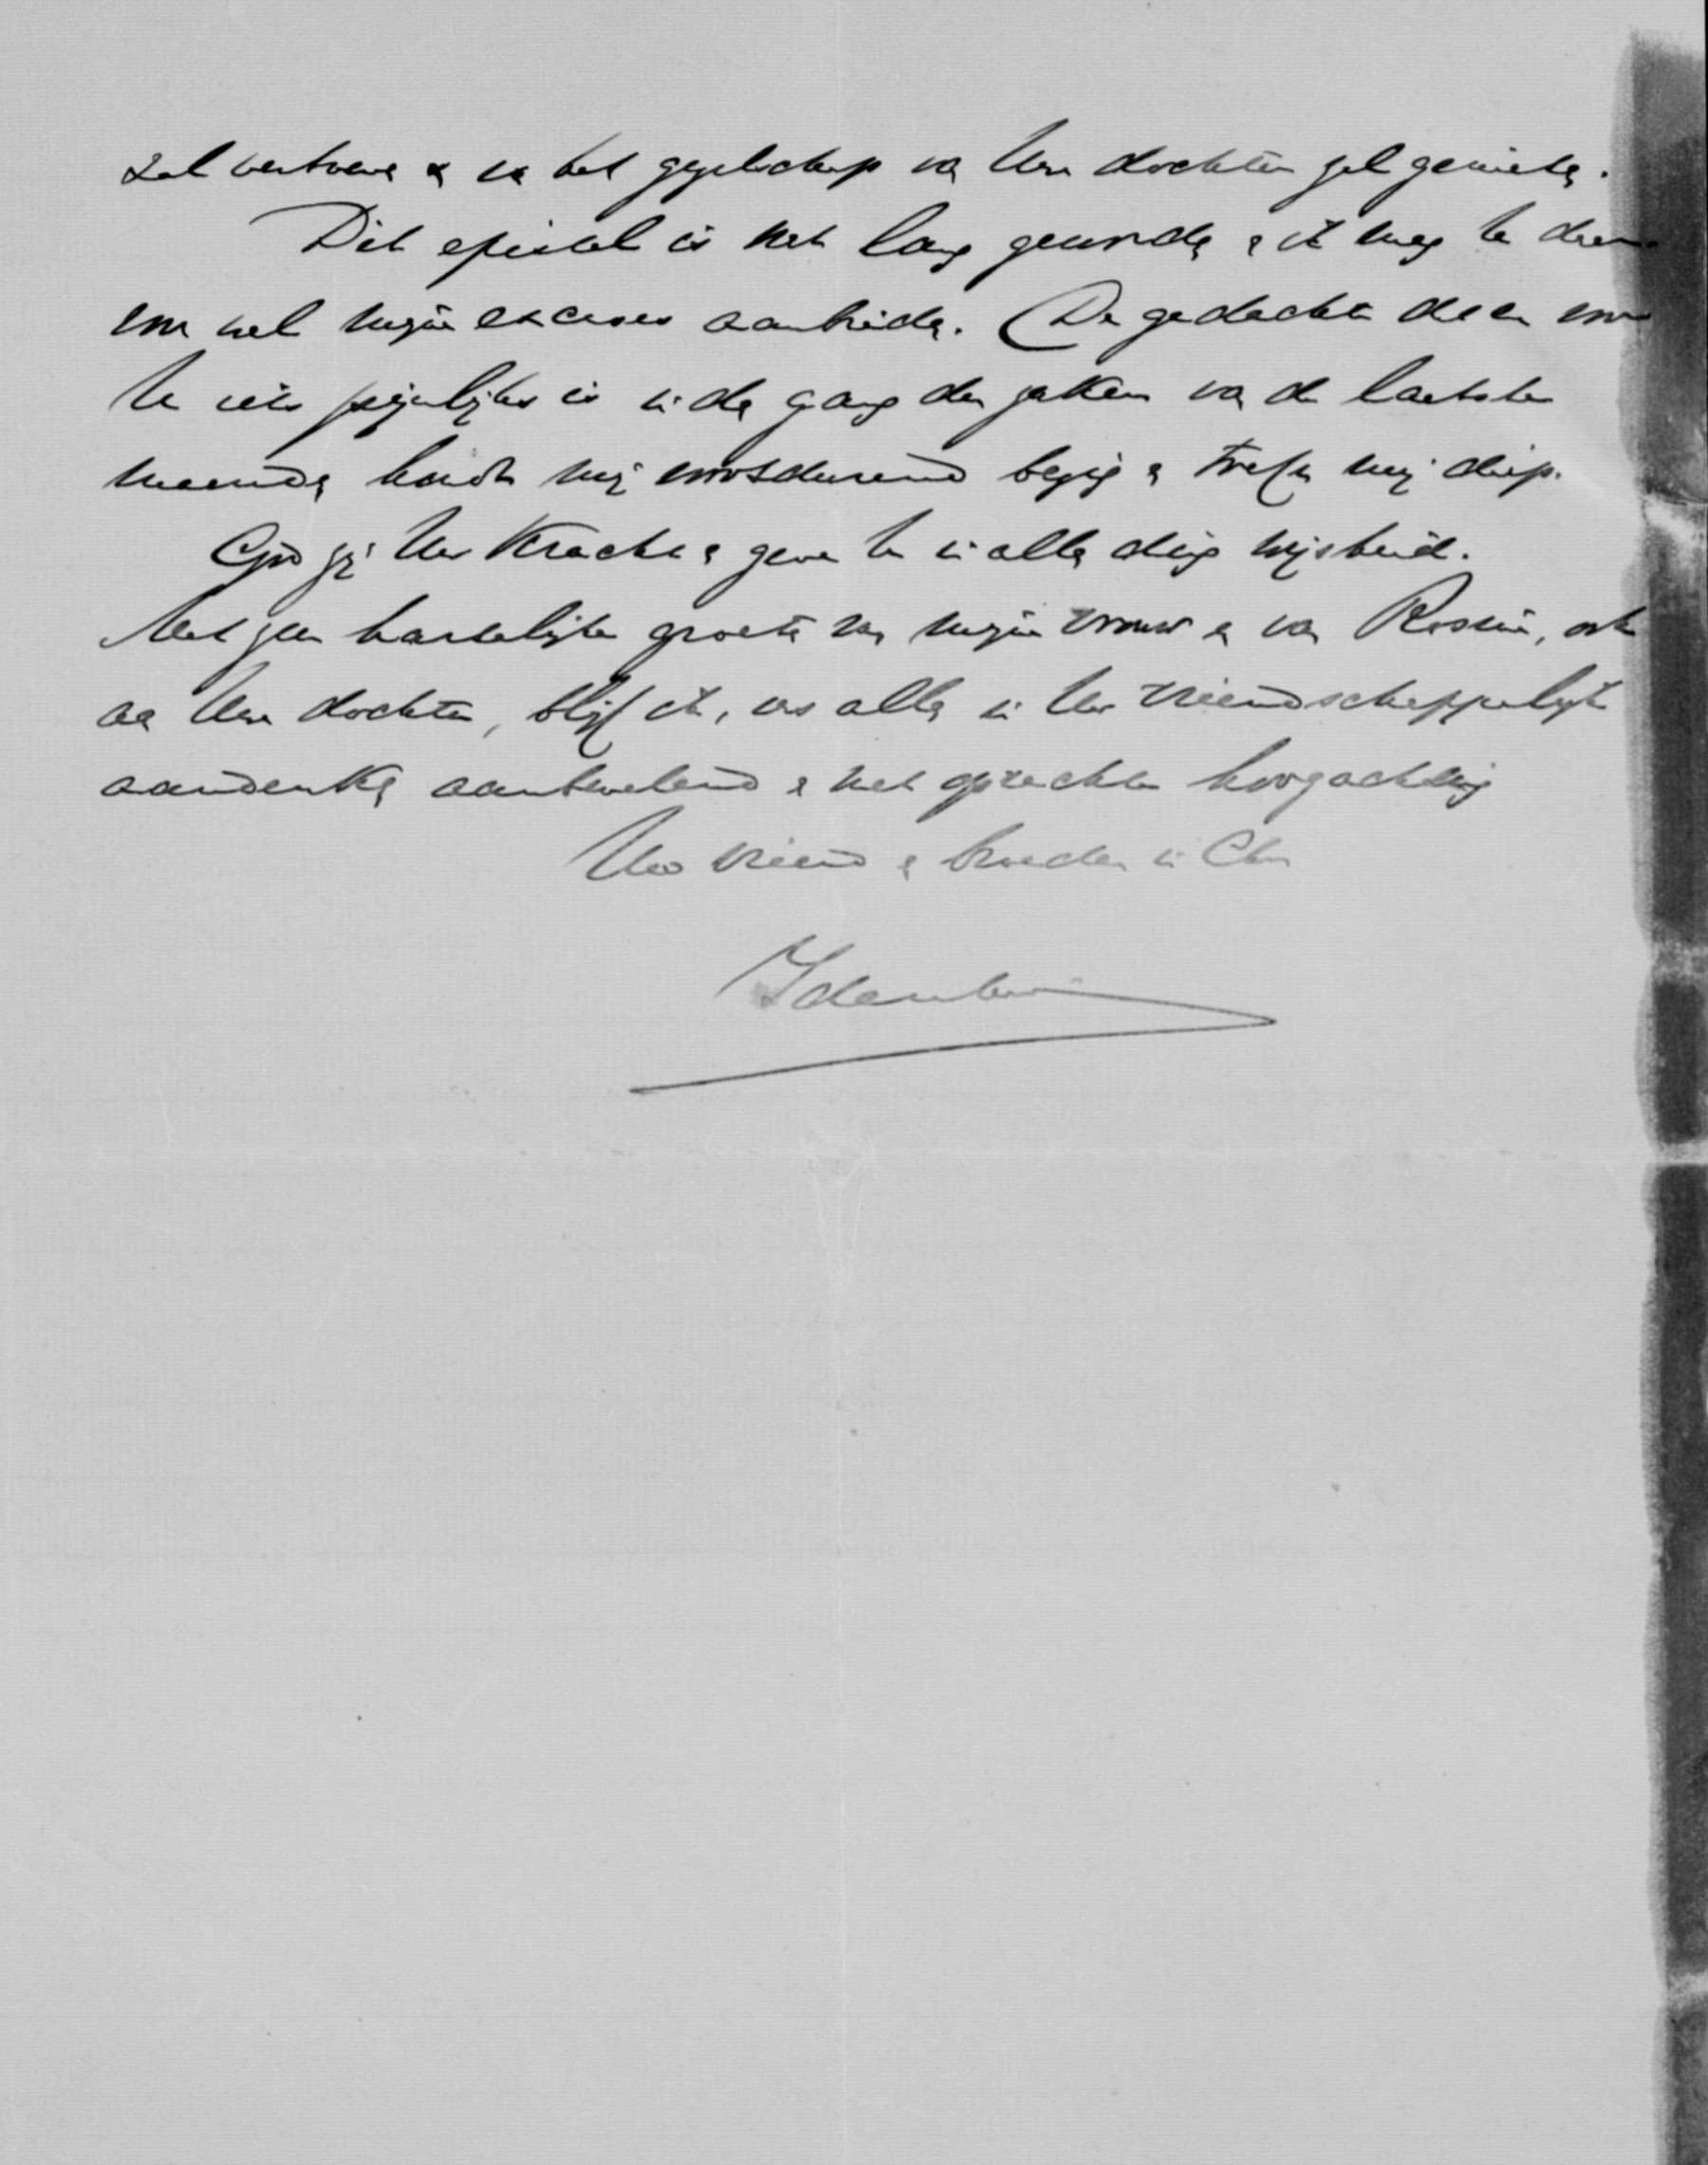 zal vertoeven en van het gezelschap van Uwe dochter zal genieten.
Dit epistel is wat lang geworden en ik mag U daar-
voor wel mijne excuses aanbieden. De gedachte dat er voor
U iets pijnlijks is in den gang der zaken van de laatste
maanden houdt mij voortdurend bezig en treft mij diep.
God zij Uw Kracht en geve U in alle ding wijsheid.
Met zeer hartelijke groeten van mijne vrouw en van Rosine, ook
aan Uwe dochter, blijf ik, ons allen in Uw vriendschappelijk
aandenken aanbevelend en met oprechte hoogachting
Uw vriend en broeder in Chr
Idenburg